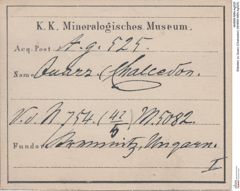 K. K. Mineralogisches Museum.
Acq. Post A. g. 525.
Name Quarz (Chalcedon.
V. d. N. 754. (41/5) M. 5082.
Fundo Kremnitz, Ungarn.
I